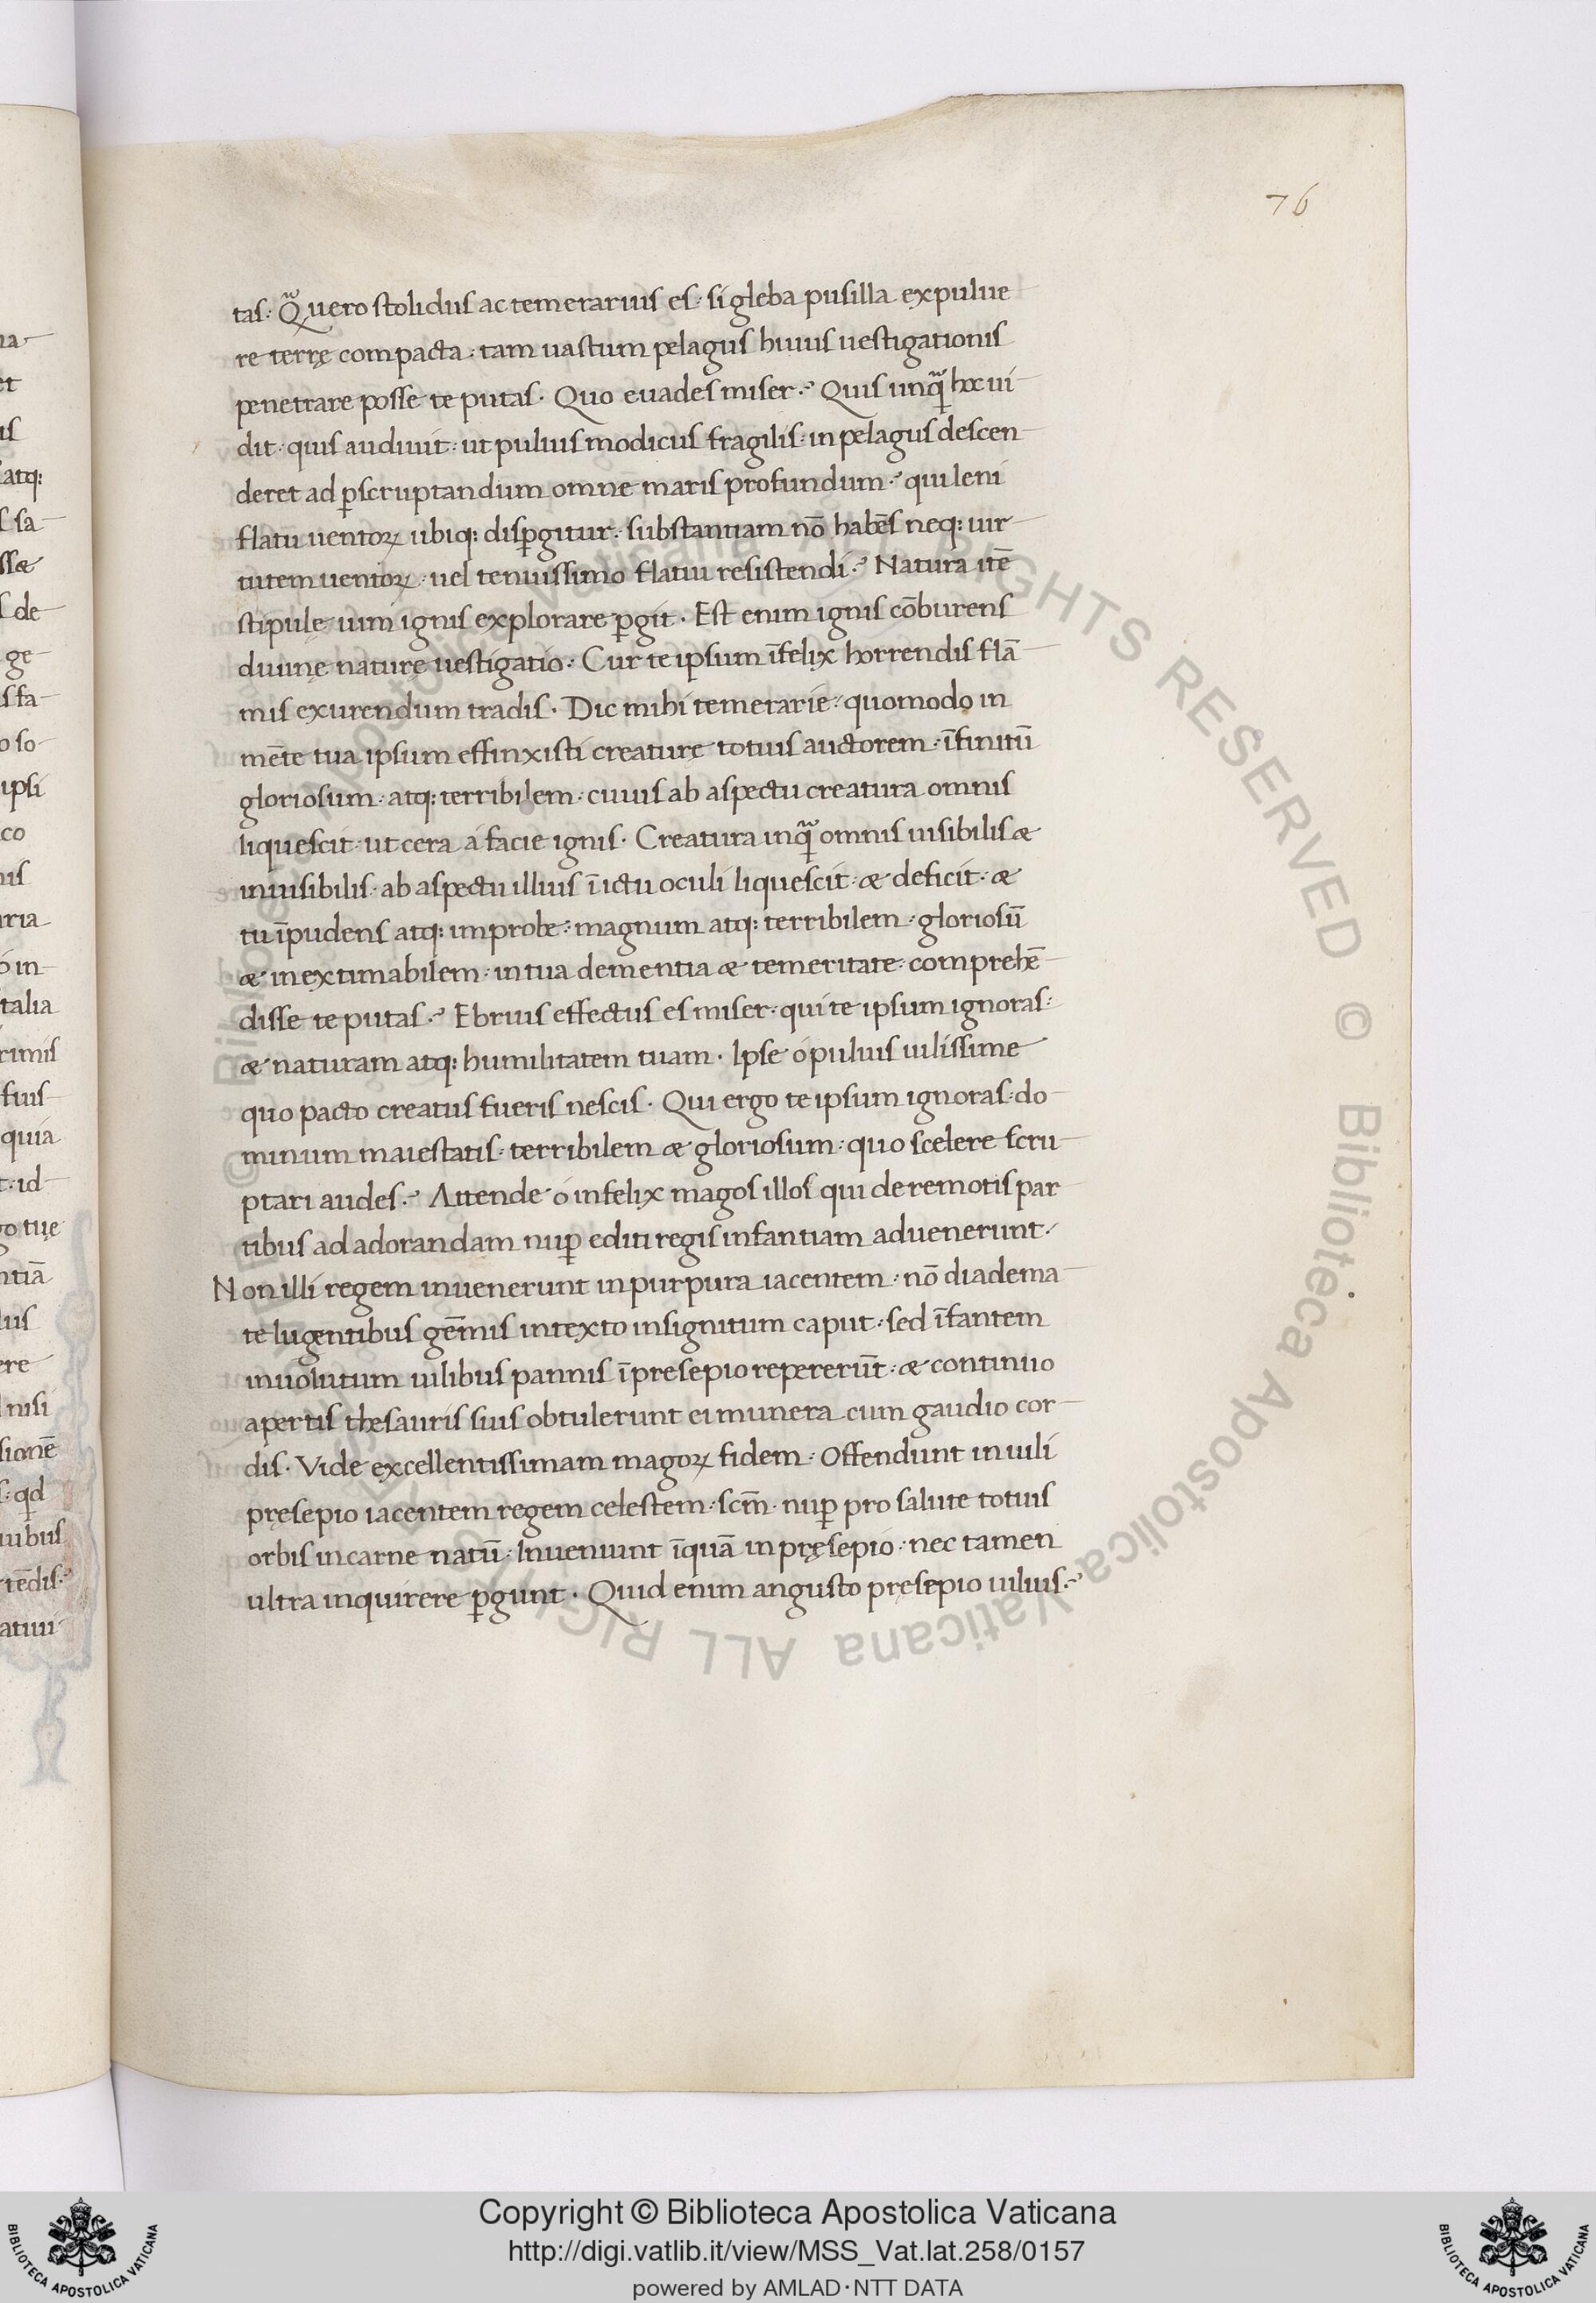 76
tas: Qᷓ uero stolidus ac temerarius es: si gleba pusilla ex pulue
re terrę compacta: tam uastum pelagus huius uestigationis
penetrare posse te putas. Quo euades miser? Quis unqᷓ hoc ui
dit: quis audiuit: ut puluis modicus fragilis: in pelagus descen
deret ad ꝑscruptandum omne maris profundum? qui leni
flatu uentoꝝ ubiq: disꝑgitur: substantiam nō habēs neq: uir
tutem uentoꝝ: uel tenuissimo flatui resistendi? Natura itē
stipulę uim ignis explorare ꝑgit. Est enim ignis cōburens
diuinę naturę uestigatio: Cur te ipsum īfelix horrendis flā
mis exurendum tradis. Dic mihi temerarie: quomodo in
mēte tua ipsum effinxisti creaturę totius auctorem: īfinitū
gloriosum: atq: terribilem: cuius ab aspectu creatura omnis
liquescit: ut cera á facie ignis. Creatura inqᷓ omnis uisibilis æ
inuisibilis: ab aspectu illius ī ictu oculi liquescit: æ deficit: æ
tu īpudens atq: improbe: magnum atq: terribilem: gloriosū
æ inextimabilem: in tua dementia æ temeritate: comprehē
disse te putas? Ebrius effectus es miser: qui te ipsum ignoras:
æ naturam atq: humilitatem tuam. Ipse ó puluis uilissime
quo pacto creatus fueris nescis. Qui ergo te ipsum ignoras: do
minum maiestatis: terribilem æ gloriosum: quo scelere scru
ptari audes? Attende ó infelix magos illos qui de remotis par
tibus ad adorandam nuꝑ editi regis infantiam aduenerunt:
Non illi regem inuenerunt in purpura iacentem: nō diadema
te lugentibus gēmis intexto insignitum caput: sed īfantem
inuolutum uilibus pannis ī presepio repererūt: æ continuo
apertis thesauris suis obtulerunt ei munera cum gaudio cor
dis. Vide excellentissimam magoꝝ fidem: Offendunt in uili
pręsepio iacentem regem celestem: scm̄: nuꝑ pro salute totius
orbis in carne natū: Inueniunt īquā in pręsepio: nec tamen
ultra inquirere ꝑgunt. Quid enim angusto pręsepio uilius?
Copyright © Biblioteca Apostolica Vaticana
http://digi.vatlib.it/view/MSS_Vat.lat.258/0157
powered by AMLAD·NTT DATA
BIBLIOTECA APOSTOLICA VATICANA
BIBLIOTECA APOSTOLICA VATICANA
© Biblioteca Apostolica Vaticana ALL RIGHTS RESERVED © Biblioteca Apostolica Vaticana ALL RIGHTS RESERVED